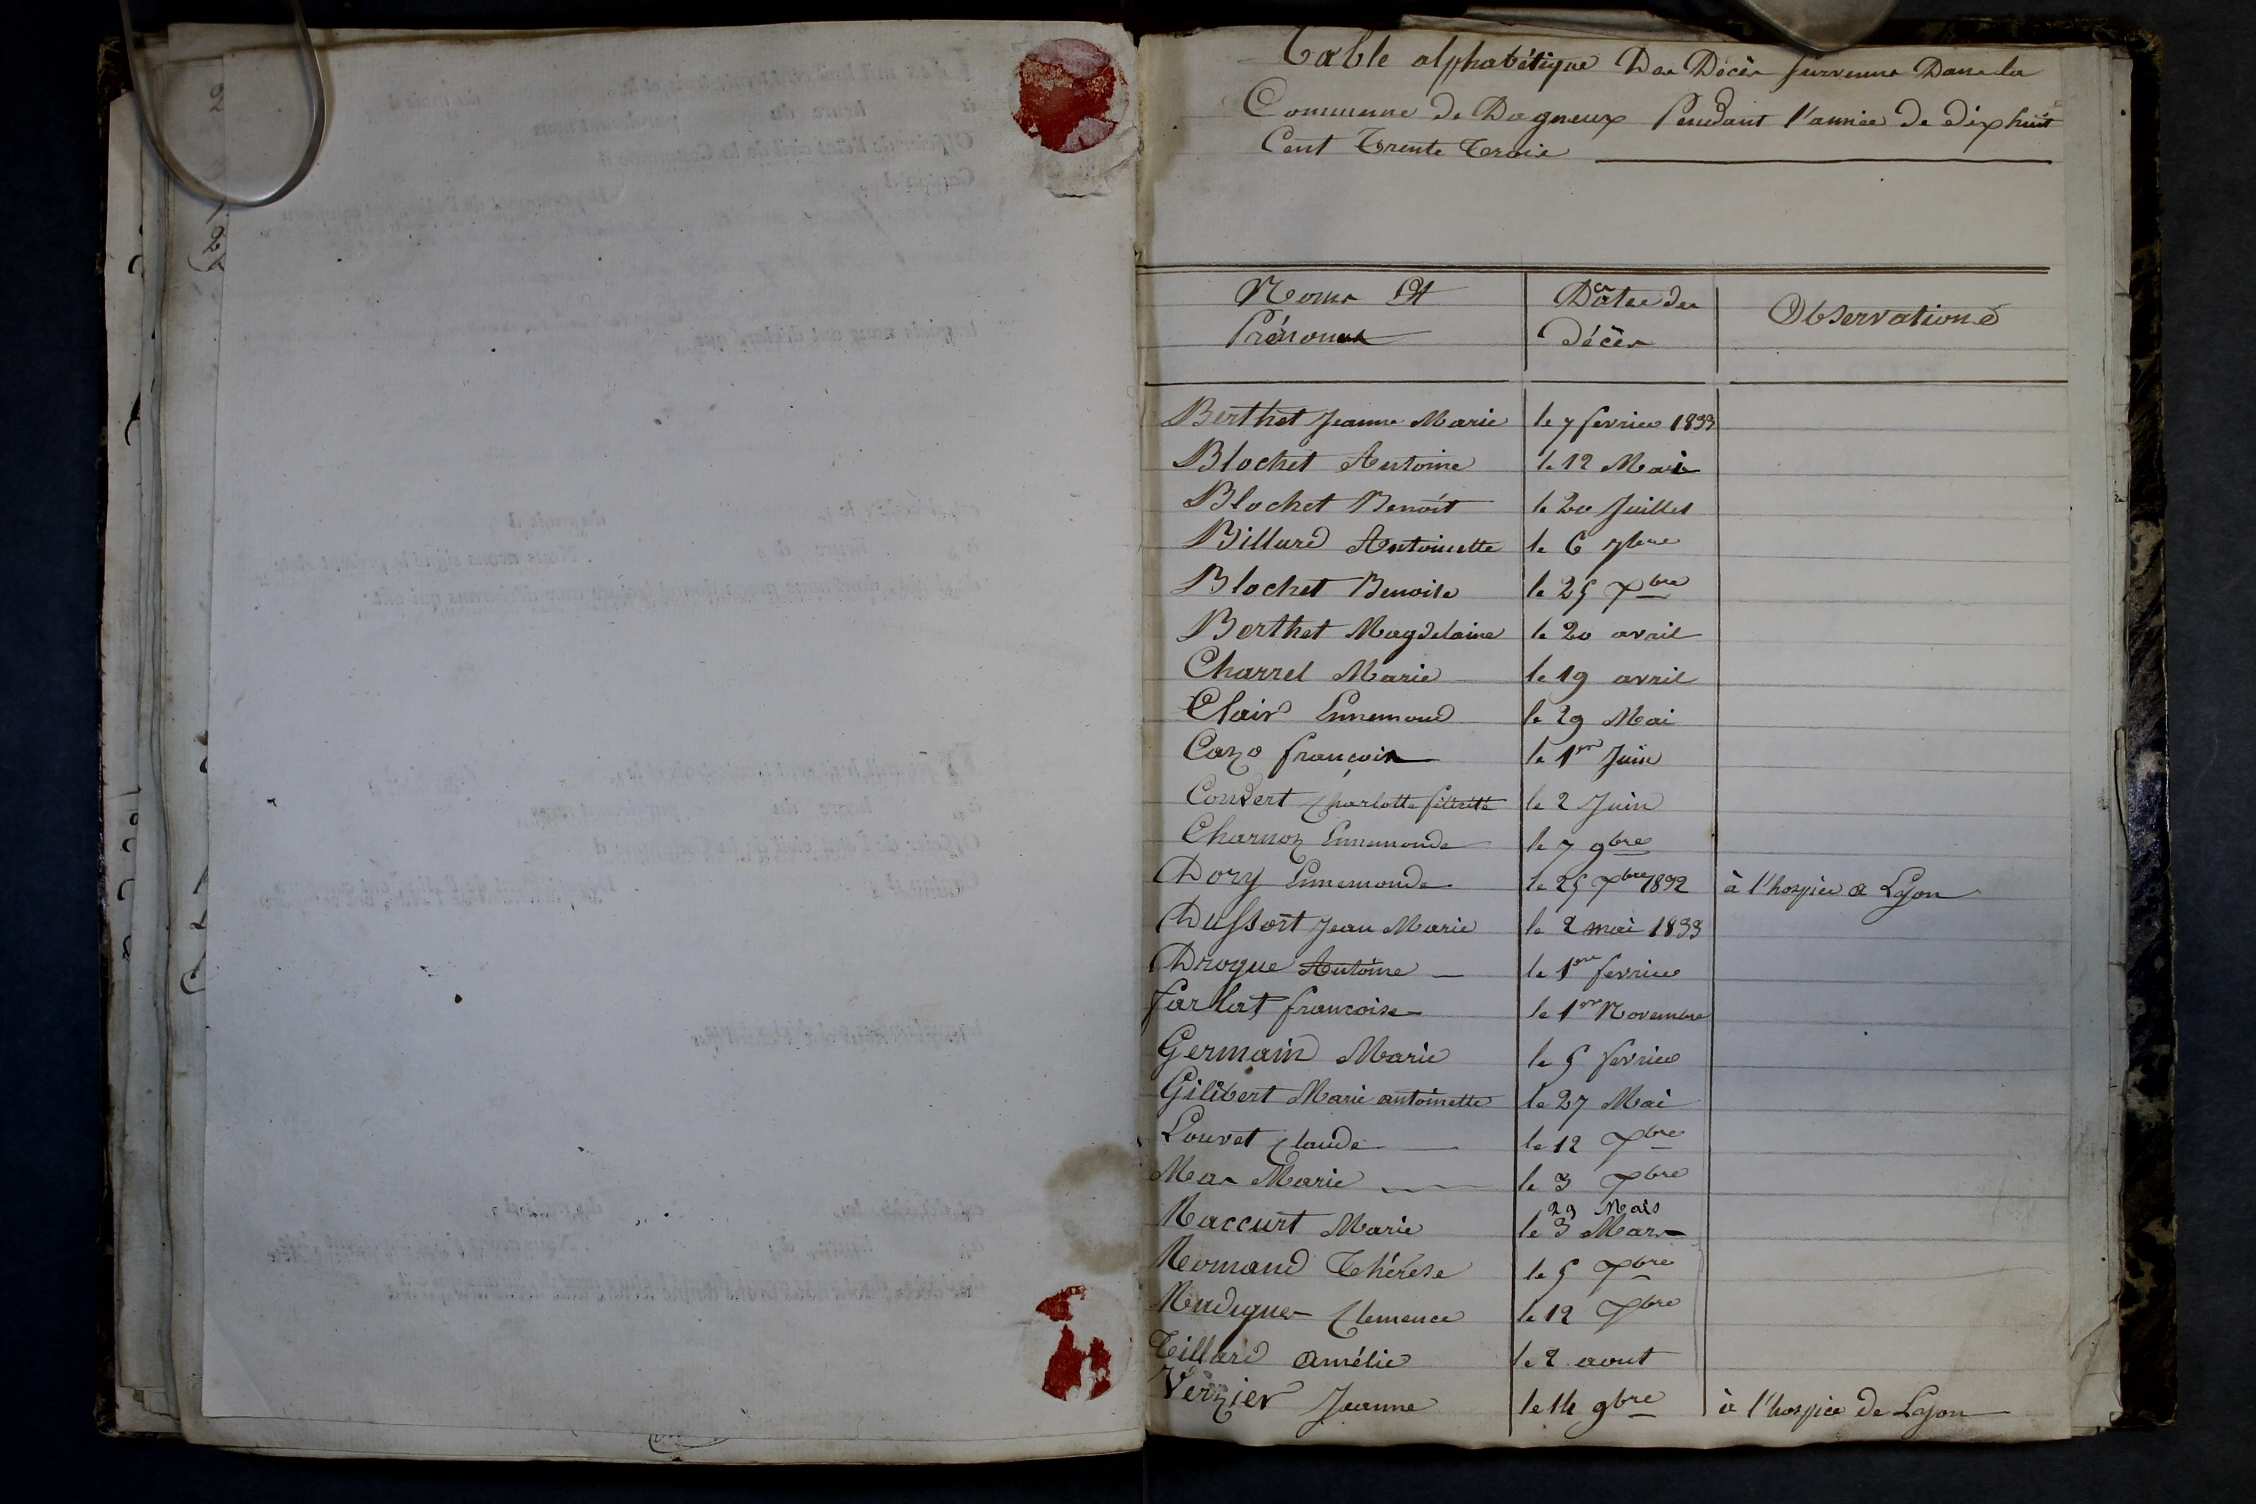 Table alphabétique Des Décès survenus Dans la
Commune de Dagneux Pendant l'année de dix huit
Cent Trente Trois
Noms Et
Prénoms
Dates des
décès
Observations
Berthet Jeanne Marie le 7 fevrier 1833
Blochet Antoine le 12 Mai
Blochet Benoit le 20 Juillet
Billard Antoinette le 6 7bre
Blochet Benoite le 25 Xbre
Berthet Magdelaine le 20 avril
Charrel Marie le 19 avril
Clair Ennemond le 29 Mai
Cazo francois le 1er Juin
Convert Charlotte félicité le 2 Juin
Charnoz Ennemonde le 7 9bre
Dory Ennemonde le 25 Xbre 1832 à l'hospice a Lyon
Dussort Jean Marie le 2 mai 1833
Drogue Antoine le 1er fevrier
farlat francoise le 1er Novembre
Germain Marie le 5 fevrier
Gilibert Marie antoinette le 27 Mai
Louvet Claude le 12 Xbre
Mas Marie le 3 Xbre
29 Mais
Raccurt Marie le 3 Mars
Romand Thérèse le 5 Xbre
Rudigue Clemence le 12 Xbre
Tillard amélie le 2 aout
Verzier Jeanne le 14 9bre à l'hospice de Lyon